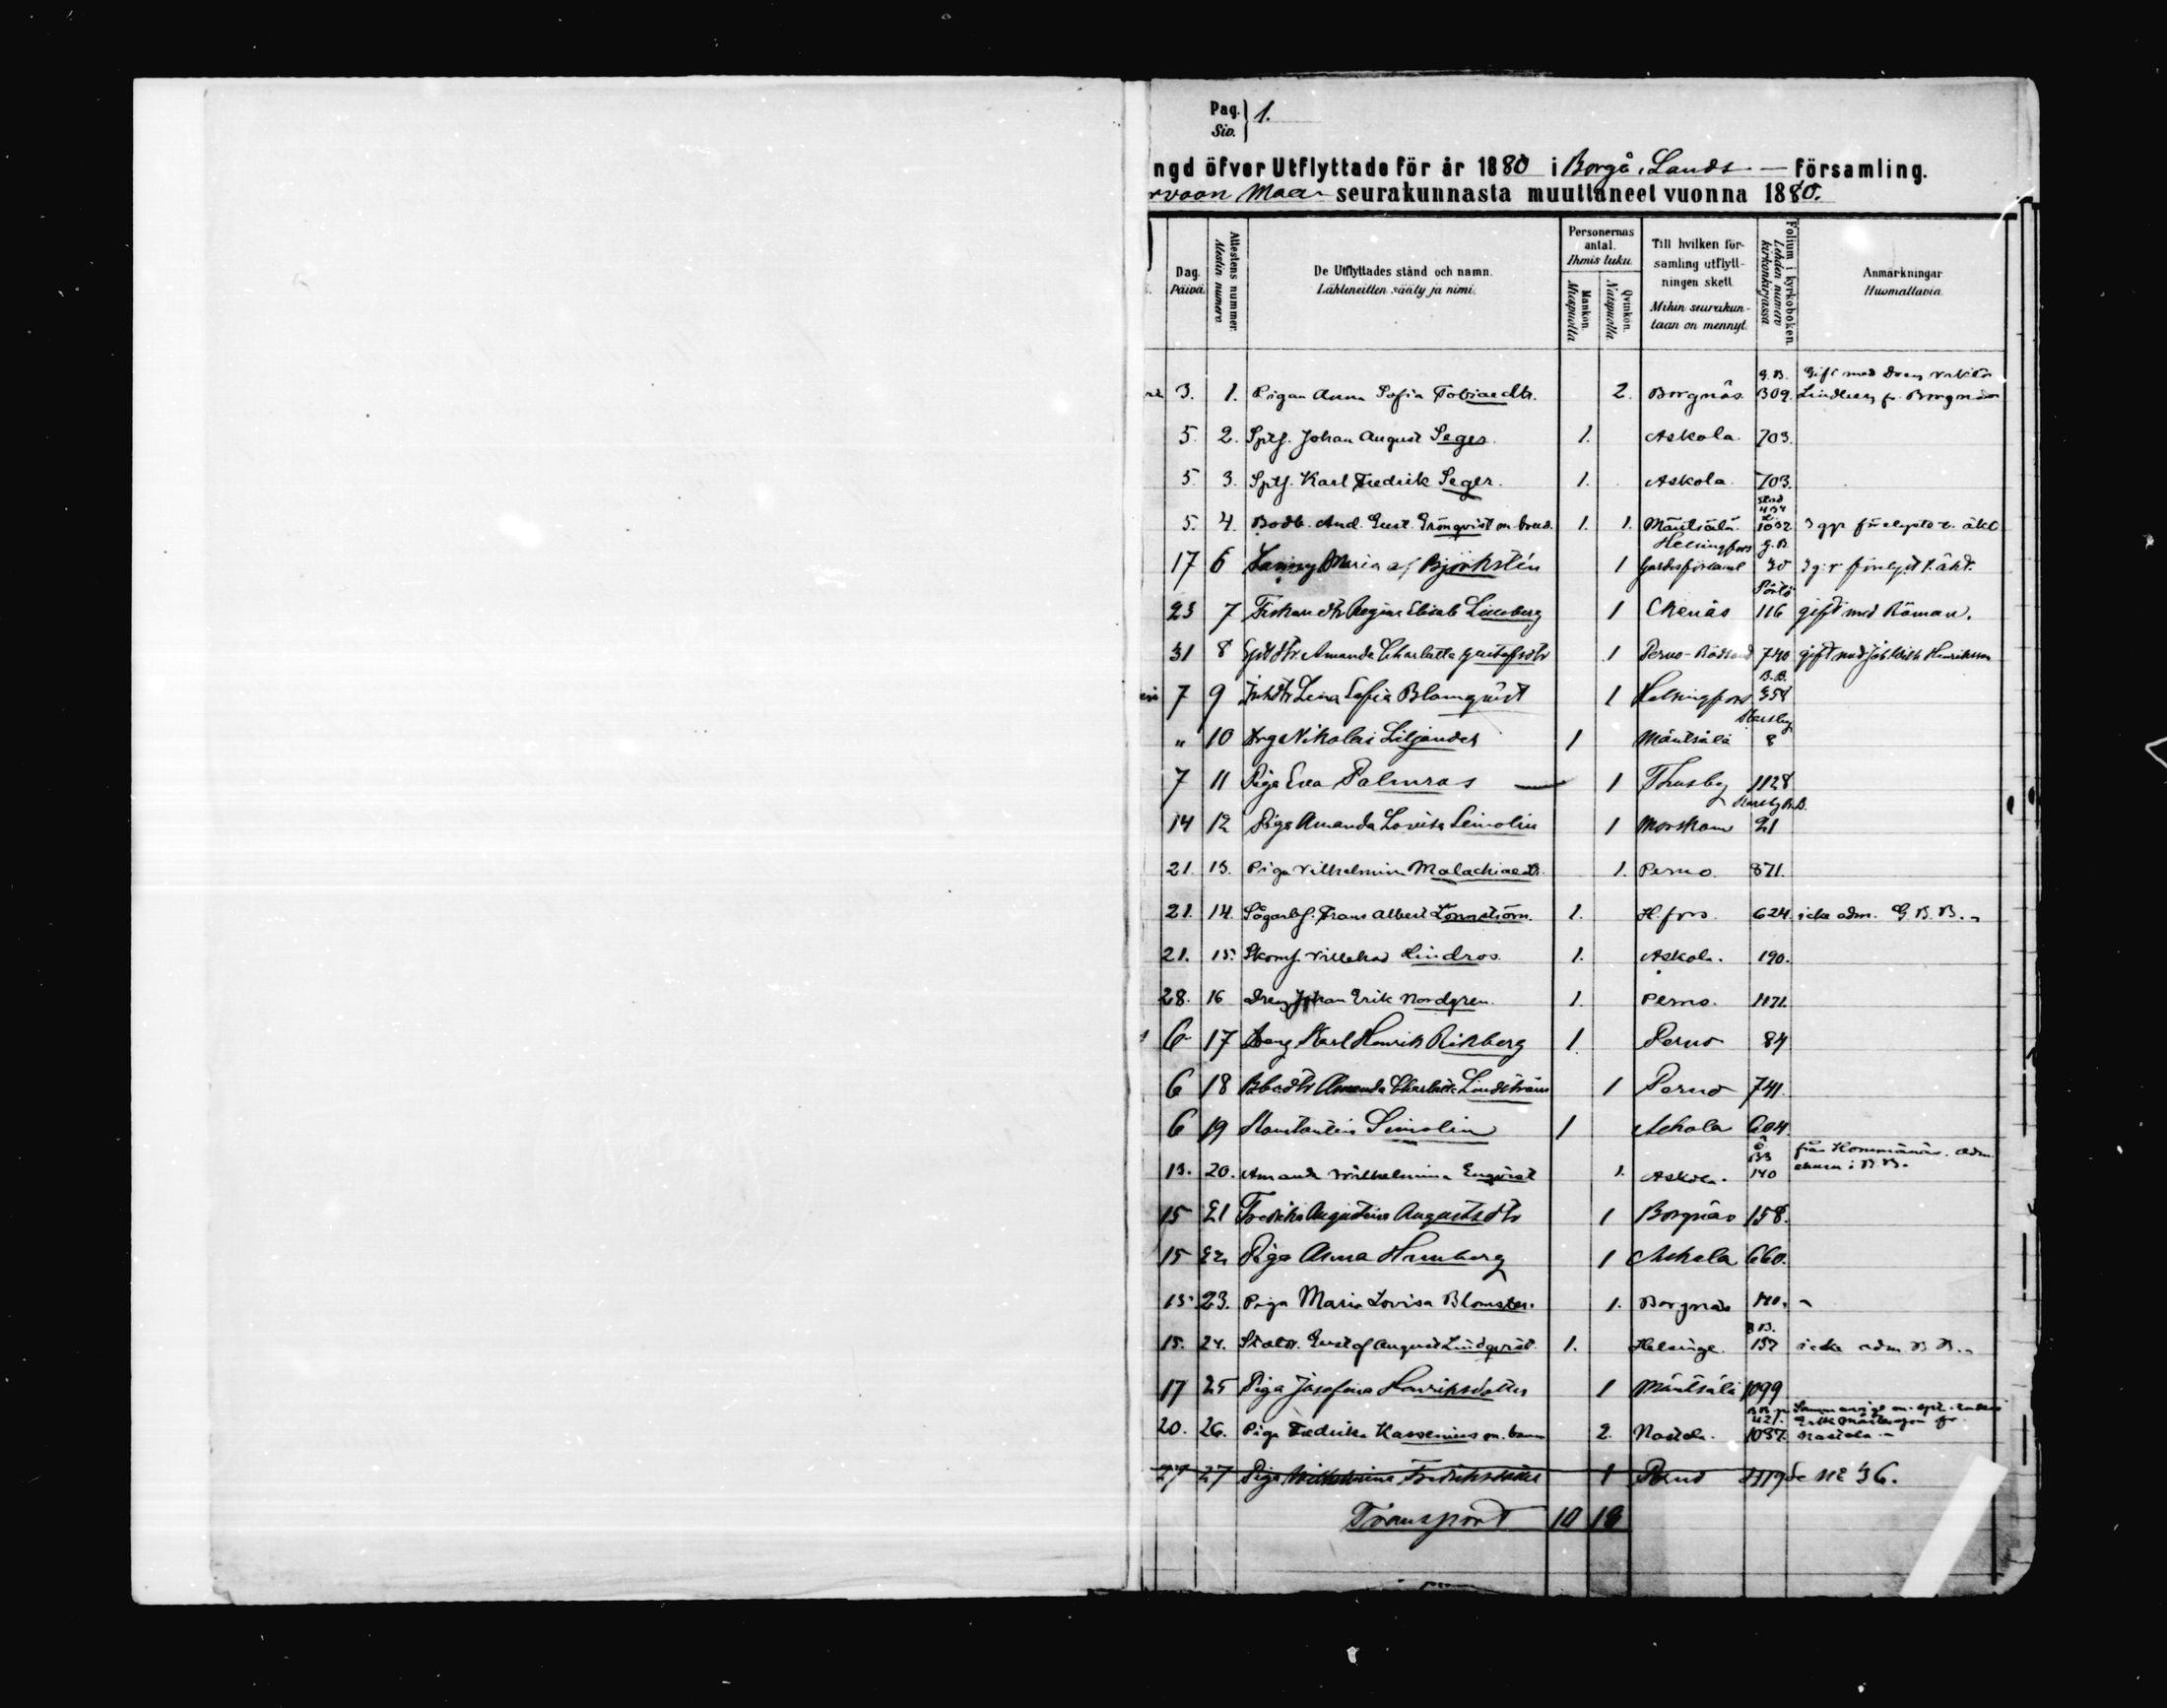 Pag. 1.
Siv.
ngd öfver Utflyttade för år 1880 i Borgå Lands församling.
rvoon Maa- seurakunnasta muuttaneet vuonna 1880.
Dag. Päivä. Attestens nummer. Alestin numero. De Utflyttades stånd och namn. Lähteneitten sääty ja nimi. Personernas antal. Ihmis luku. Mankön. Miespuolia Qvinkön. Naispuolia Till hvilken församling utflyttningen skett. Mihin seurakuntaan on mennyt. Folium i kyrkoboken. Lehden numero kirkonkirjassa. Anmärkningar Huomattavia.
3. 1. Pigan Anna Sofia Tobiaedtr. 2. Borgnäs G.B. 309. Gift med Dreng Lindberg fr. Borgnäs
5. 2. Sptf. Johan August Seger 1. Askola 703.
5. 3. Sptf. Karl Fredrik Seger. 1. Askola 703.
5. 4. And. Gust. Grönqvist 1. 1. Mäntsälä 1032 3 gr t. äkt
17 6 Fanny Maria af Björkstén 1 Helsingfors G.B. 30 3 g:r t. äkt.
23 7 Regina Elisab 1 Ekenäs 116 gift med Råman.
31 8 Amanda Charlotta Gustafsdtr 1 Perno 740 gift med Joh Wilh Henriksson
7 9 Lena Sofia Blomqvist 1 Helsingfors B.B. 358
" 10 Drg Nikolai Liljander 1 Mäntsälä 8
7 11 Piga Eva Palmras 1 Thusby 1128
14 12 Piga Amanda Lovisa Simolin 1 Morskom 21
21. 13. Piga Vilhelmina Malachiaedr. 1. Perno. 871.
21. 14. Frans Albert Lönnström. 1. H.fors. 624. icke adm. G.B.B.
21. 15. Skomf. Villehad Hindros. 1. Askola. 190.
28. 16 Dreng Johan Erik Nordgren. 1. Perno. 1171.
6 17 Dreng Karl Henrik Rikberg 1. Perno 84
6 18 Amanda Charlotta Lindström 1 Perno 741.
6 19 Konstantin Simolin 1 Askola 604.
13. 20. Amanda Wilhelmina Enqvist 1. Askola. 140 från
15 21 Fredrika Augustina Augustsdtr 1 Borgnäs 158.
15 22 Piga Anna Humberg 1 Askola 660.
15 23. Piga Maria Lovisa Blomster. 1. Borgnäs 140.
15. 24. Gustaf August Lindqvist 1. Helsinge. B.B. 157 icke adm B.B.
17 25 Piga Josefina Henriksdotter 1 Mäntsälä 1099
20. 26. Piga Fredrika Kassenius m. barn 2. Nastola. 421. 1037. Erik Mårtensson fr. Nastola
27 27 Piga Wilhelmina Fredriksdotter 1 Perno 1119 Se No 36.
Transport 10 18